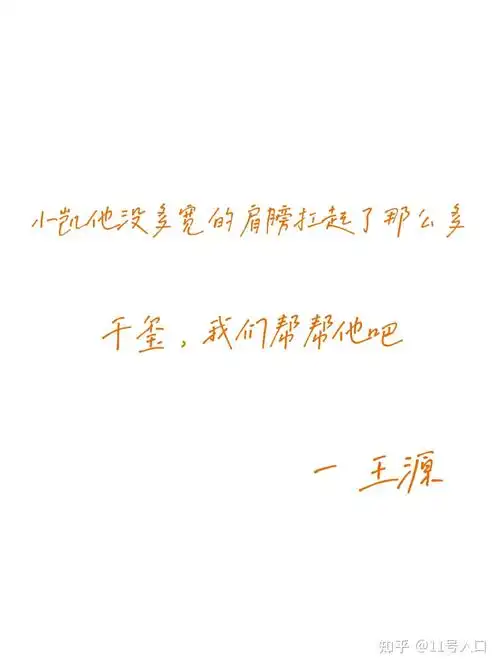 小凯他没多宽的肩膀扛起了那么多
千玺,我们帮帮他吧
一 王源
知乎 @11号人口